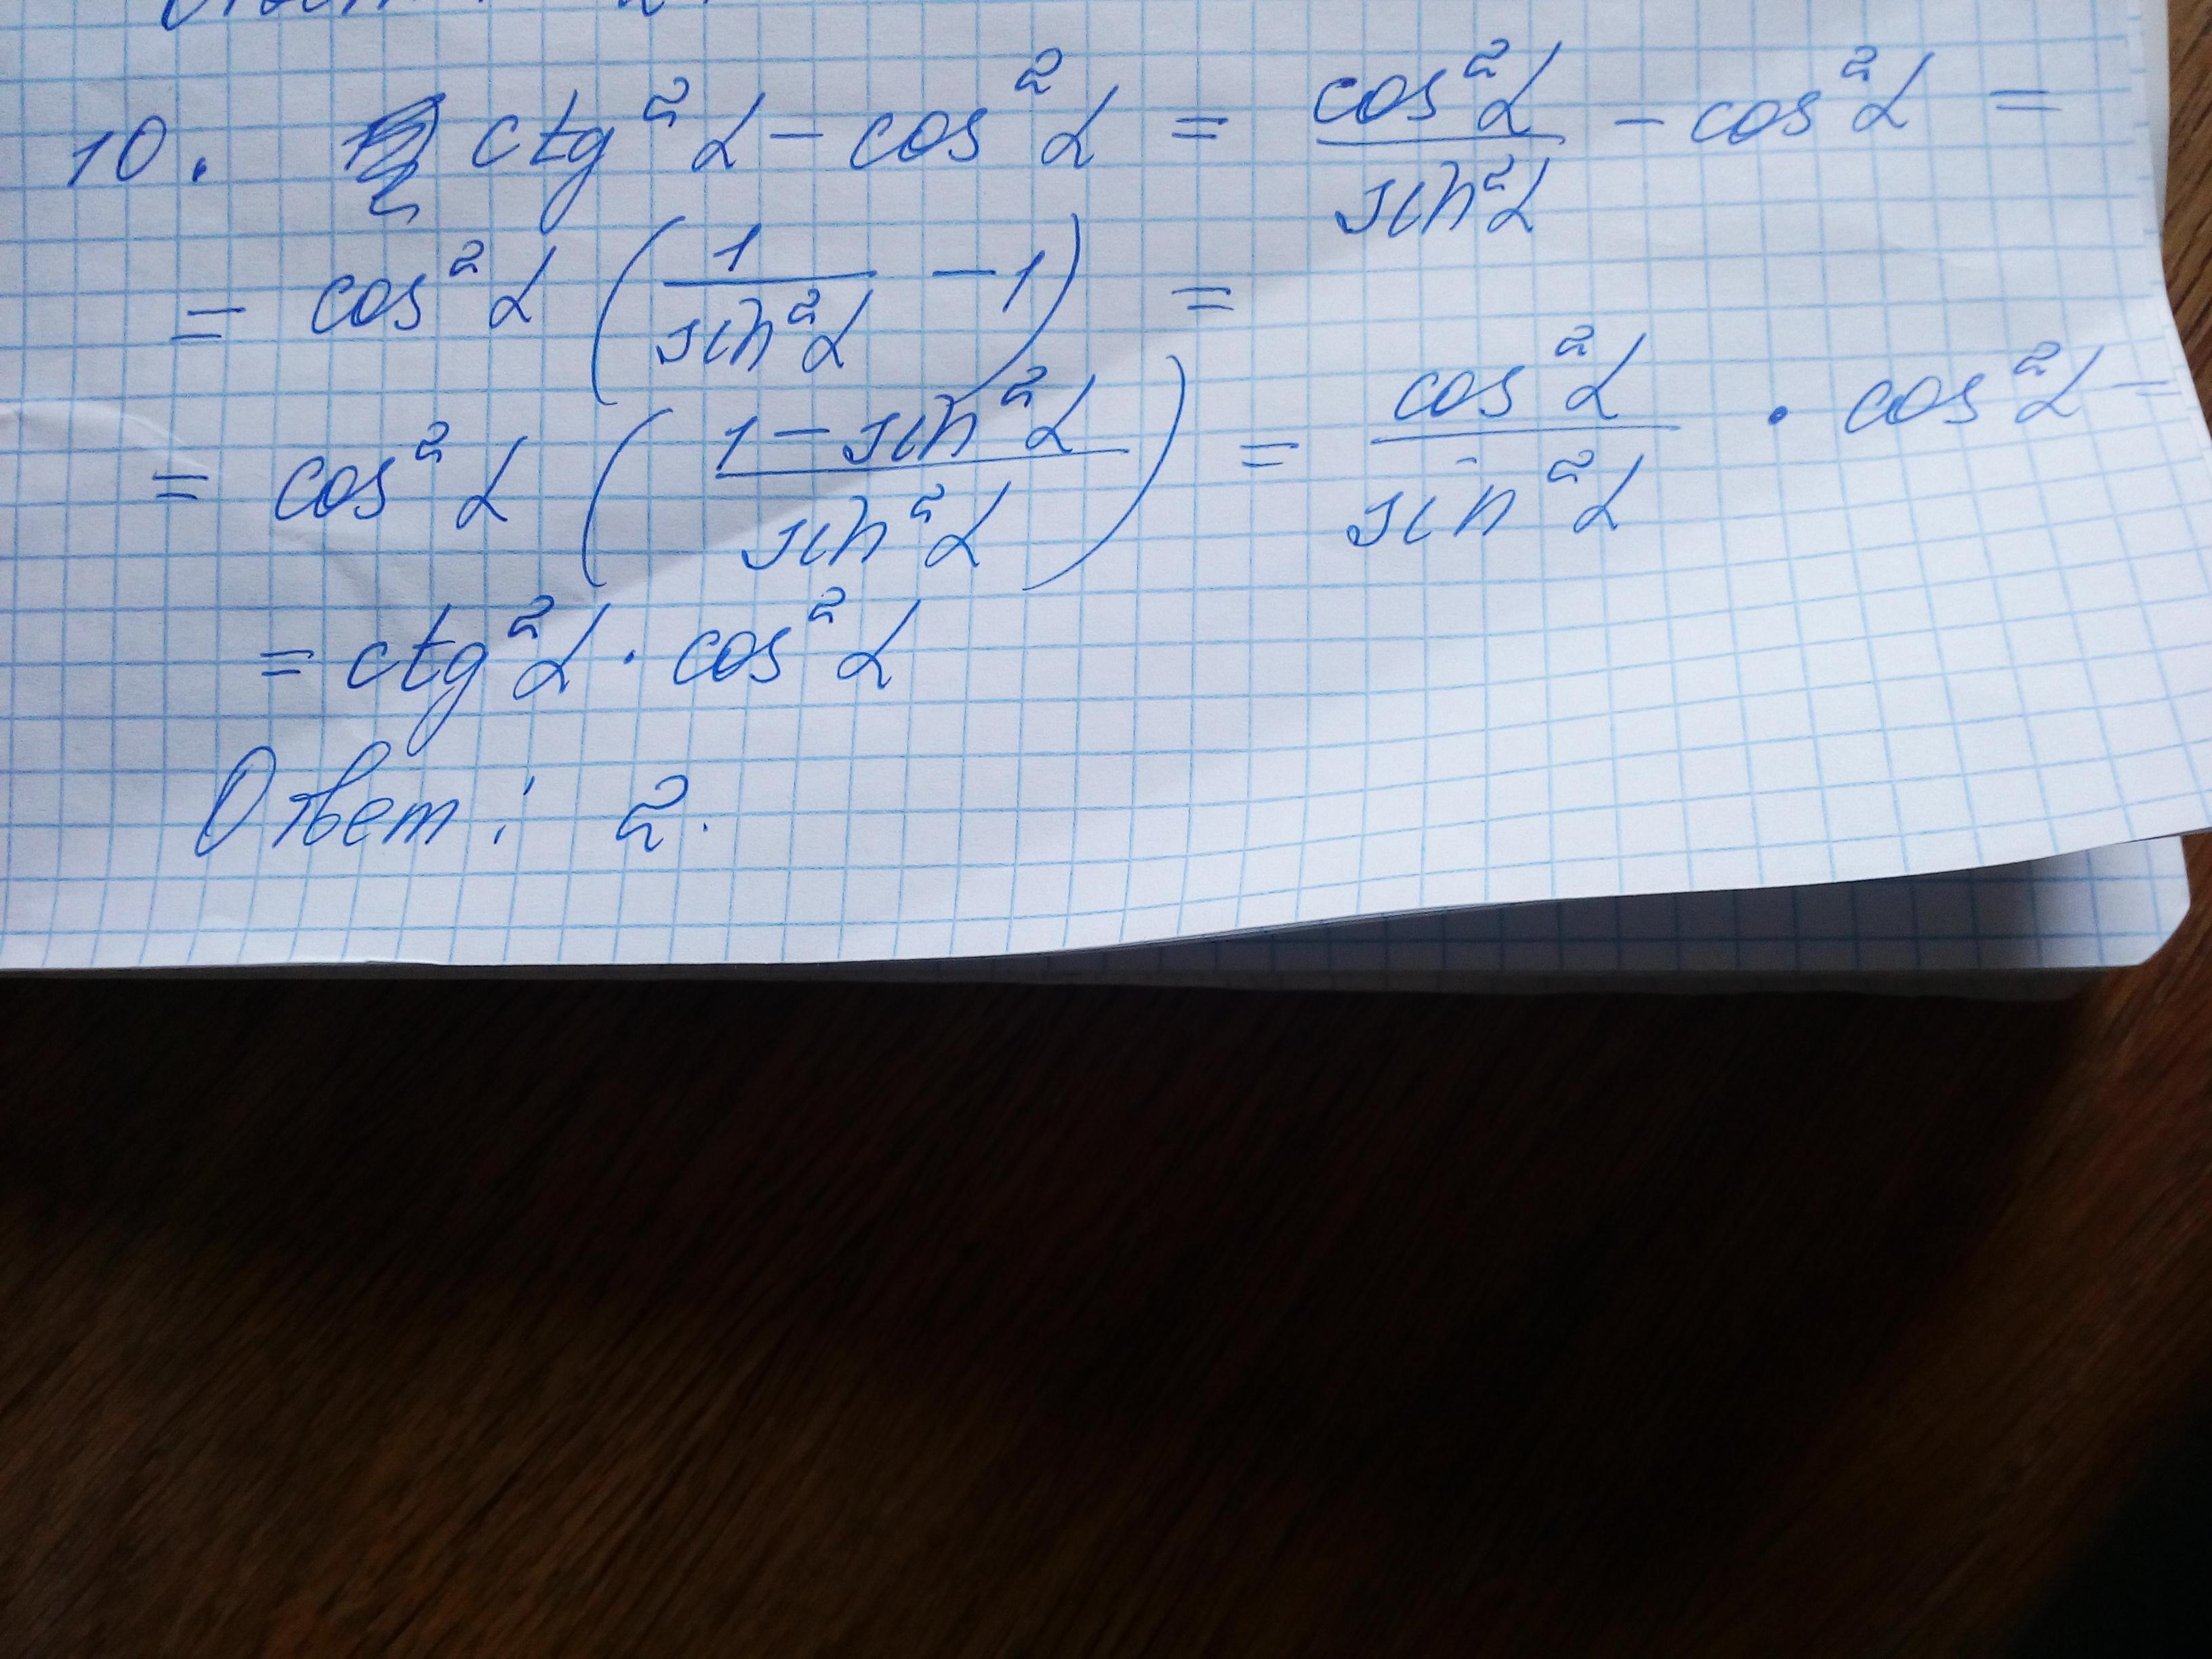 10. ctg²α − cos²α = cos²α / sin²α − cos²α =
= cos²α (1 / sin²α − 1) =
= cos²α ((1 − sin²α) / sin²α) = cos²α / sin²α · cos²α =
= ctg²α · cos²α
Ответ: 2.